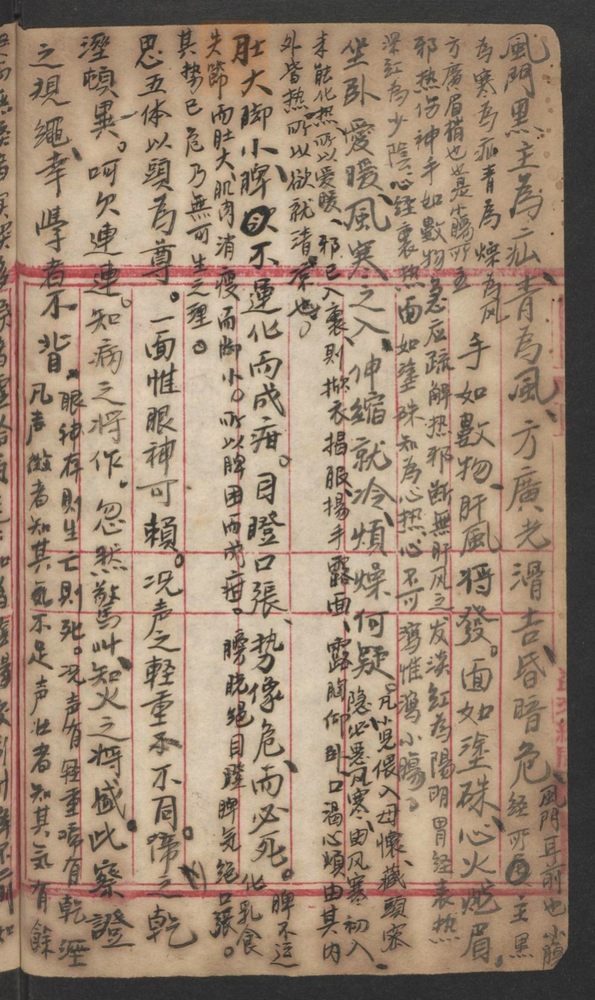 風門黑主為疝、青為風、方廣光滑吉昏暗危、風門耳前也小腸
經所主黑
為寒為疝青為燥為风
方廣眉稍也是小腸所主
手如數物、肝風将發。面如塗硃、心火炎眉。
邪热伤神手如數物急应疏解热邪断無肝风之发淡紅為陽明胃經表热
深紅為少陰心經裏热面如塗硃知為心热心不可瀉惟瀉小腸。
坐卧愛暖、風寒之入、伸縮就冷、煩燥何疑凡小児偎入母懷、藏頭密
隐必恶风寒、由风寒初入、
未能化热所以爱暖、邪已入裏則掀衣揭服揚手露面、露胸仰卧、口渴心煩由其内
外皆热所以欲就清凉也。
肚大脚小、脾不運化而成疳。目瞪口張、势像危而必死。脾不运
化乳食
失節而肚大、肌肉消瘦而脚小。所以脾困而成疳。膀胱絕目瞪脾気絕口張。
其势已危乃無可生之理。
思五体以頭為尊。一面惟眼神可賴。况声之輕重不同。啼之乾
溼頓異。呵欠連連。知病之将作。忽然驚叫、知火之将盛。此察證
之規繩、幸學者不背。眼神存則生亡則死。况声有輕重啼有乾溼
凡声微者知其気不足声壮者知其気有餘